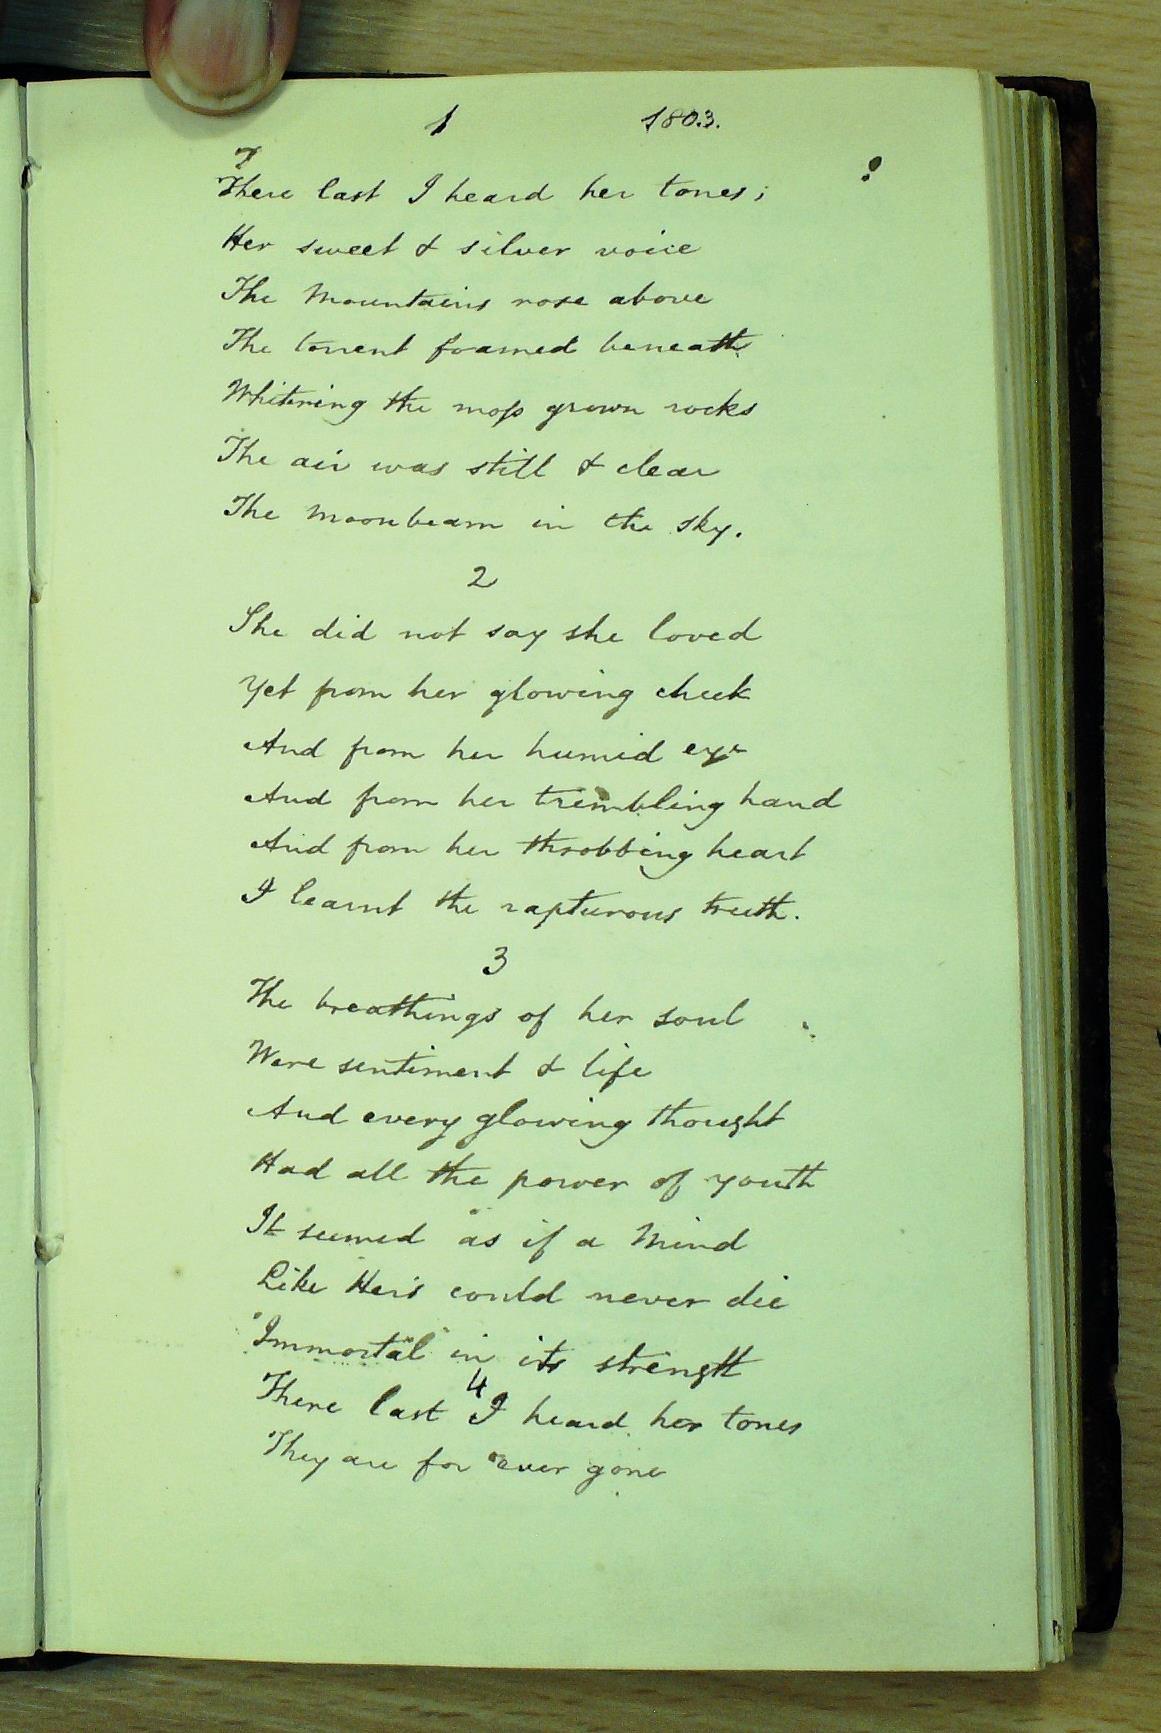 1 1803.
There last I heard her tones;
Her sweet & silver voice
The Mountains rose above
The torrent foamed beneath
Whitening the moſs grown rocks
The air was still & clear
The moonbeam in the sky.
2
She did not say she loved
Yet from her glowing cheek
And from her humid eye
And from her trembling hand
And from her throbbing heart
I learnt the rapturous truth.
3
The breathings of her soul
Were sentiment & life
And every glowing thought
Had all the power of youth
It seemed as if a Mind
Like Her's could never die
Immortal in its strength
4
There last I heard her tones
They are for ever gone